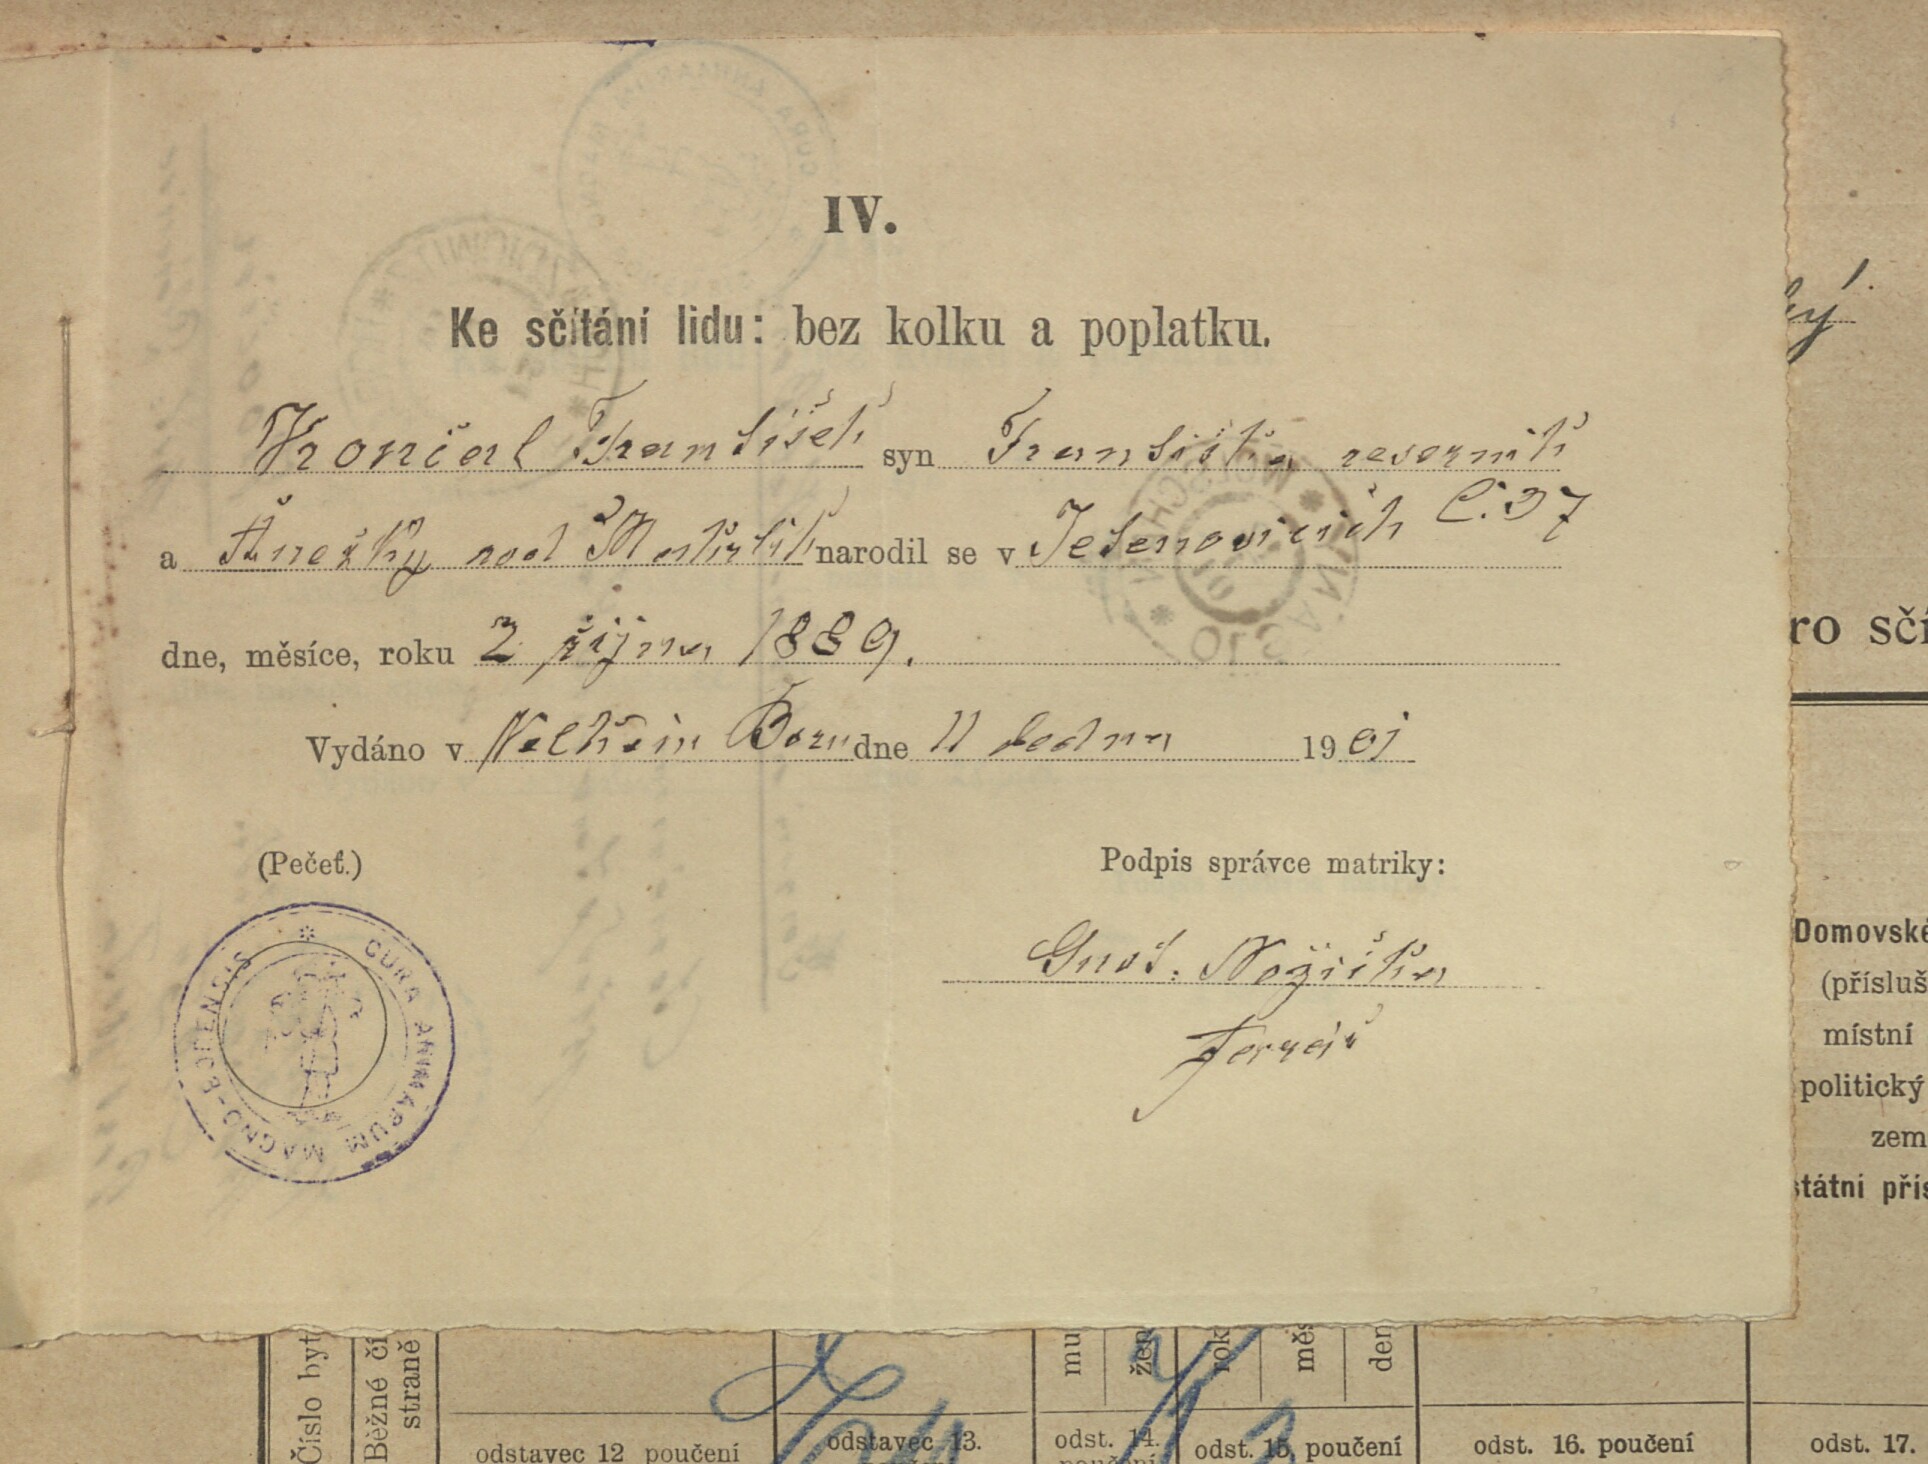 IV.
Ke sčítání lidu: bez kolku a poplatku.
František syn Františka
a Anežky narodil se v Jetenovicích č. 37
dne, měsíce, roku 2 října 1889.
Vydáno v Velkém Boru dne 11 ledna 1901
(Pečeť.)
Podpis správce matriky:
CURA ANIMARUM MAGNO-BORENSIS
farář
ý
ro sčí
Domovské
(přísluš
místní
politický
zem
státní přís
Číslo byt
Běžné čí
straně
mu
žen
rok
měs
den
odstavec 12 poučení
odstavec 13.
odst. 14.
odst. 15 poučení
odst. 16. poučení
odst. 17.